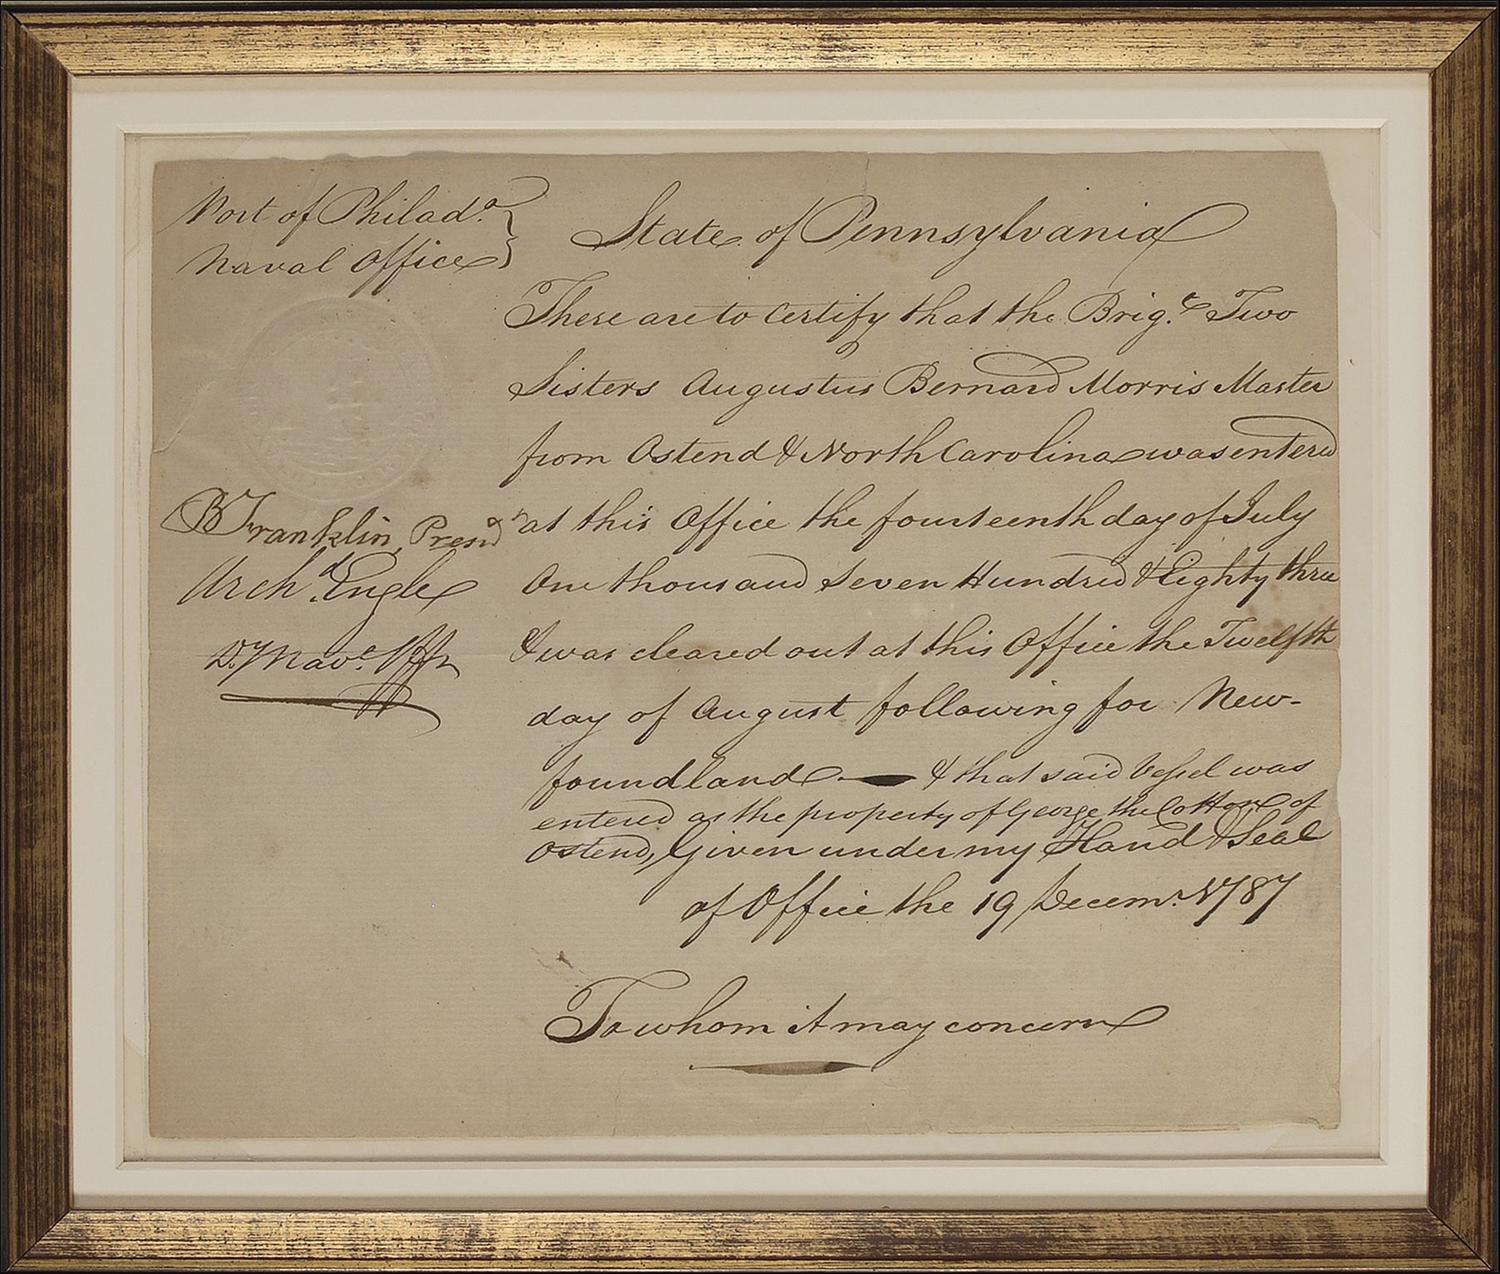 Port of Philad.a
Naval Office
State of Pennsylvania
These are to Certify that the Brig.e Two
Sisters Augustus Bernard Morris Master
from Ostend & North Carolina was entered
at this Office the fourteenth day of July
One thousand Seven Hundred & Eighty three
& was cleared out at this Office the Twelfth
day of August following for New-
foundland & that said Vessel was
entered as the property of George the Cottone of
Ostend, Given under my Hand & Seal
of Office the 19 Decem.r 1787
B Franklin, Presid.t
Arch.d Engle
D.y Nav.l Offr
To whom it may concern